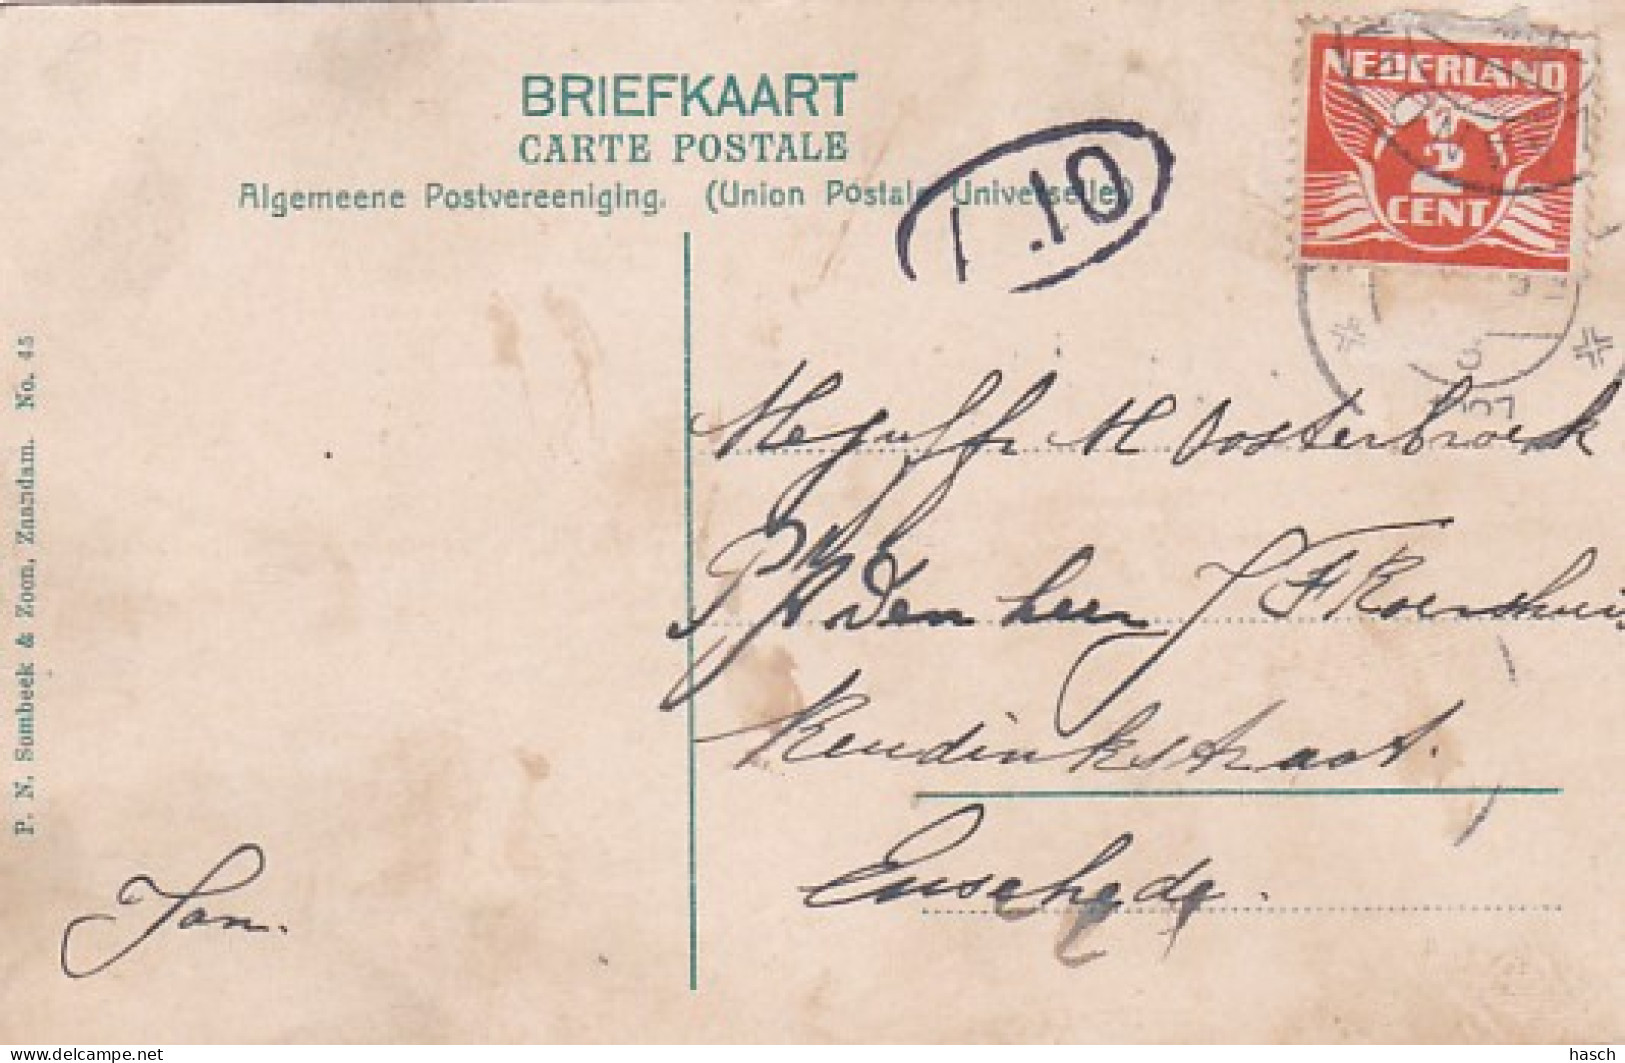 BRIEFKAART
CARTE POSTALE
Algemeene Postvereeniging. (Union Postale Universelle)
1.10
NEDERLAND
2
CENT
P. N. Sombeek & Zoon, Zaandam. No. 45
Mejuffr H Oosterbroek
p/a Den heer J F
straat.
Enschede.
Jan.
delcampe.net
hasch